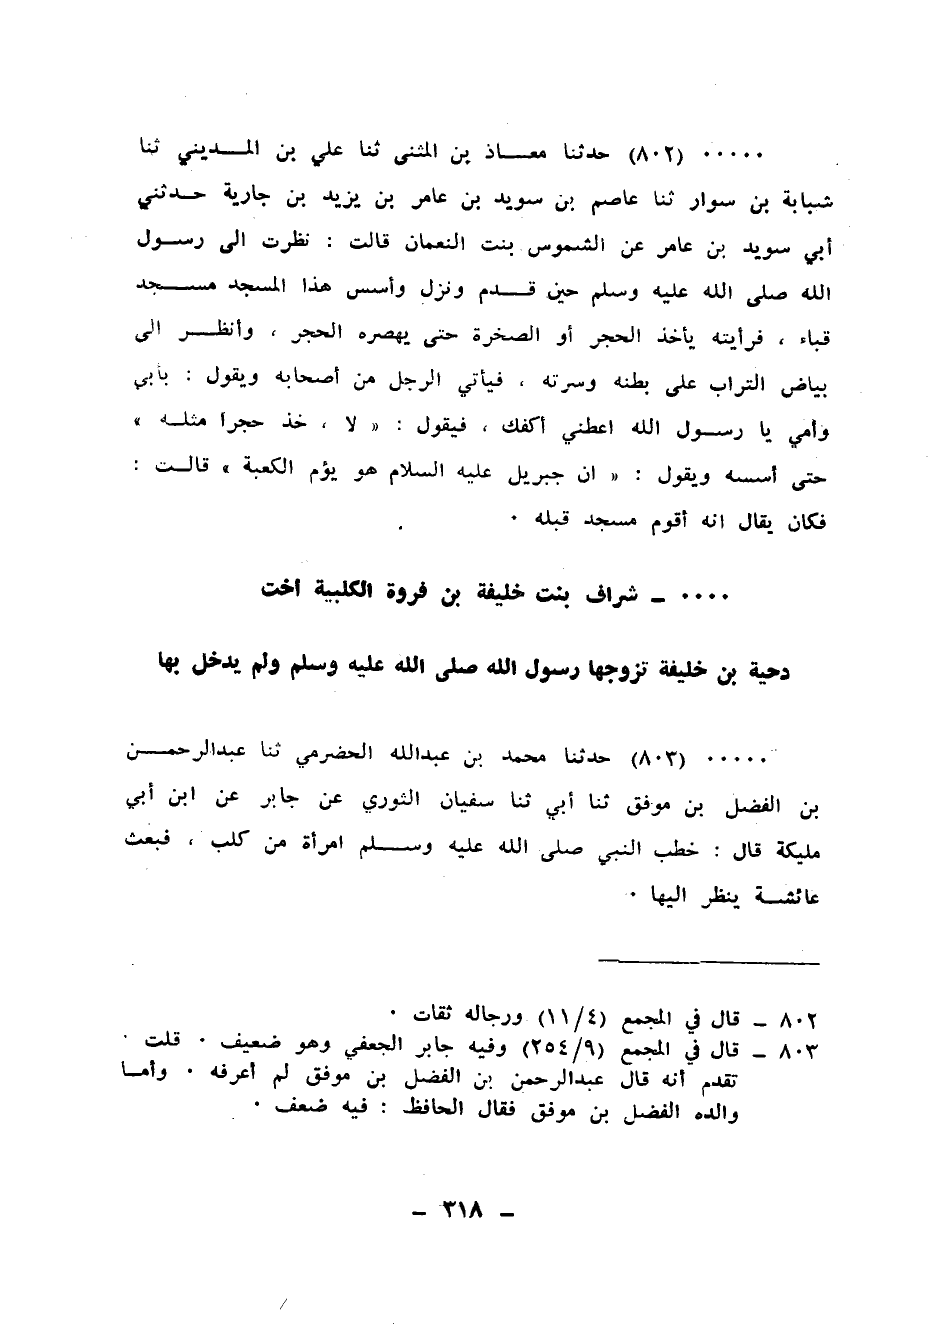 ٠٠٠٠٠ (٨٠٢) حدثنا معاذ بن المثنى ثنا علي بن المديني ثنا
شبابة بن سوار ثنا عاصم بن سويد بن عامر بن يزيد بن جارية حدثني
أبي سويد بن عامر عن الشموس بنت النعمان قالت : نظرت الى رسول
الله صلى الله عليه وسلم حين قدم ونزل وأسس هذا المسجد مسجد
قباء ، فرأيته يأخذ الحجر أو الصخرة حتى يهصره الحجر ، وأنظر الى
بياض التراب على بطنه وسرته ، فيأتي الرجل من أصحابه ويقول : بأبي
وأمي يا رسول الله اعطني أكفك ، فيقول : « لا ، خذ حجرا مثله »
حتى أسسه ويقول : « ان جبريل عليه السلام هو يؤم الكعبة » قالت :
فكان يقال انه أقوم مسجد قبله ٠
٠٠٠٠ ـ شراف بنت خليفة بن فروة الكلبية اخت
دحية بن خليفة تزوجها رسول الله صلى الله عليه وسلم ولم يدخل بها
٠٠٠٠٠ (٨٠٣) حدثنا محمد بن عبدالله الحضرمي ثنا عبدالرحمن
بن الفضل بن موفق ثنا أبي ثنا سفيان الثوري عن جابر عن ابن أبي
مليكة قال : خطب النبي صلى الله عليه وسلم امرأة من كلب ، فبعث
عائشة ينظر اليها ٠
٨٠٢ ـ قال في المجمع (١١/٤) ورجاله ثقات ٠
٨٠٣ ـ قال في المجمع (٢٥٤/٩) وفيه جابر الجعفي وهو ضعيف ٠ قلت ٠
تقدم أنه قال عبدالرحمن بن الفضل بن موفق لم أعرفه ٠ وأما
والده الفضل بن موفق فقال الحافظ : فيه ضعف ٠
ـ ٣١٨ ـ